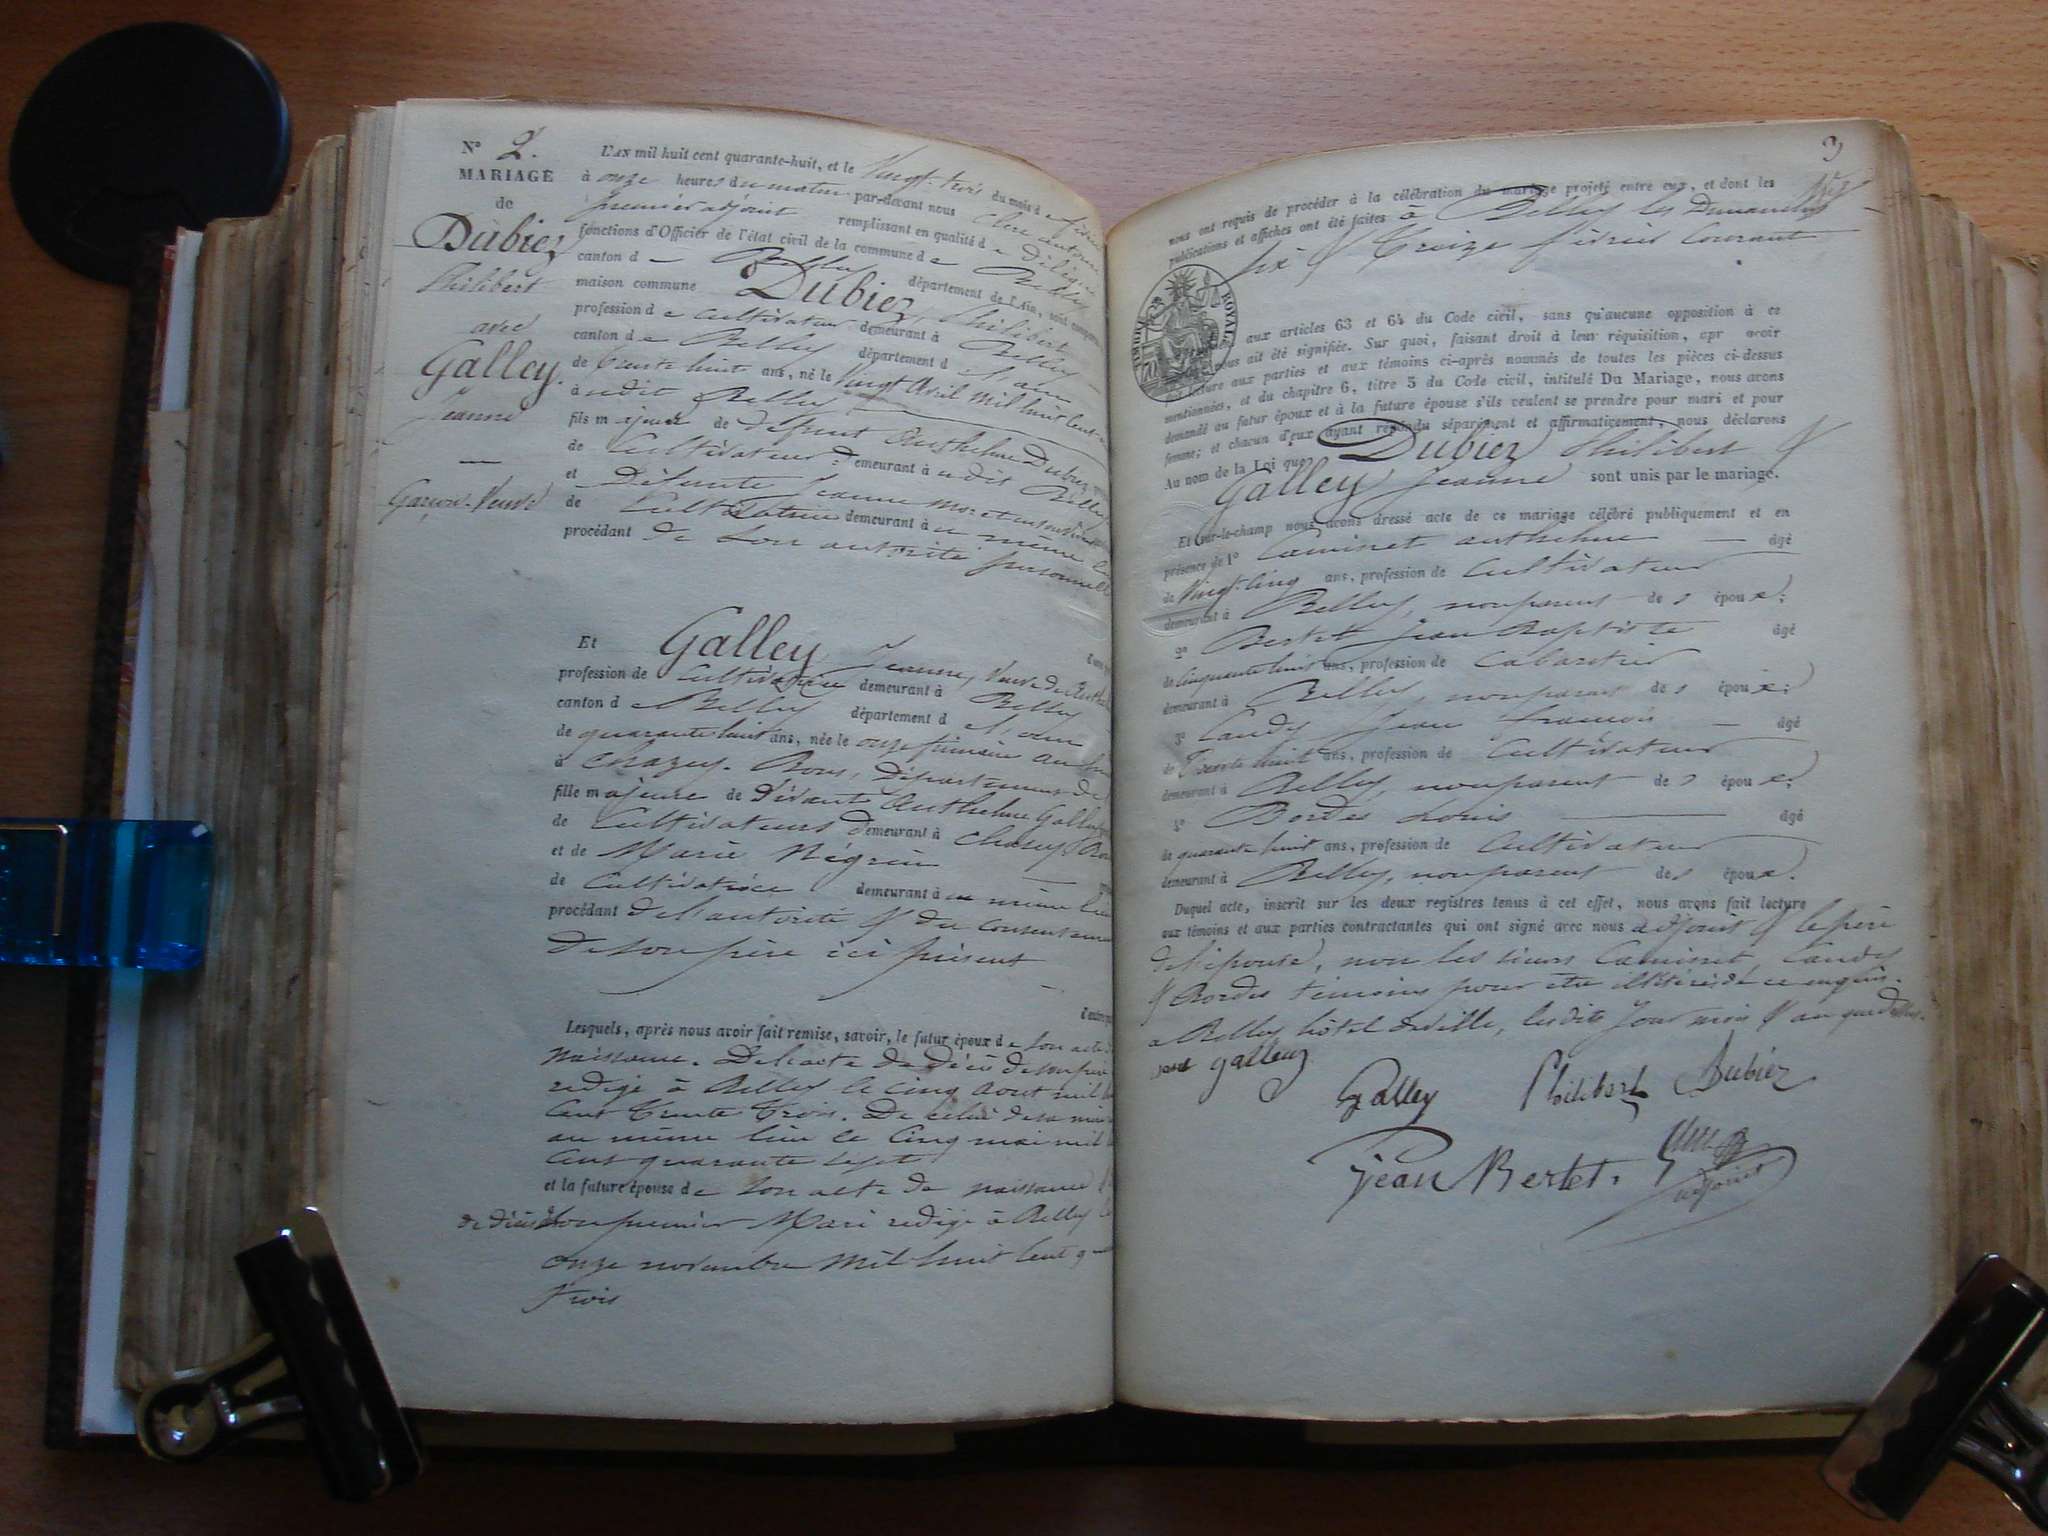 N° 2.
MARIAGE
de
Dubiez
Philibert
avec
Galley.
Jeanne
Garçon - Veuve
L'AN mil huit cent quarante-huit, et le Vingt-trois du mois de février
à onze heures du matin par-devant nous
premier adjoint remplissant en qualité de délégué
fonctions d'Officier de l'état civil de la commune de Belley
canton d Belley département de l'Ain, sont comparus
maison commune Dubiez, Philibert
profession de Cultivateur demeurant à Belley
canton de Belley département d l'ain
de trente huit ans, né le Vingt Avril mil huit cent
à udit Belley
fils majeur de défunt Anthelme Dubiez
de Cultivateur demeurant à udit Belley
et Défunte Jeanne
de Cultivatrice demeurant à u même lieu
procédant de son autorité personnelle
Et Galley Jeanne, Veuve de
profession de Cultivatrice demeurant à Belley
canton de Belley département d l'ain
de quarante huit ans, née le onze frimaire an huit
à Chazey-Bons, Département de
fille majeure de vivant Anthelme Galley
de Cultivateurs demeurant à Chazey Bons
et de Marie Négrin
de Cultivatrice demeurant à u même lieu
procédant de l'autorité & du consentement
de son père ici présent
d'autre part
Lesquels, après nous avoir fait remise, savoir, le futur époux de son acte
naissance. De l'acte de décès de son père
redigé à Belley le cinq Aout mil
cent trente trois. De celui de sa mère
au même lieu le cinq mai mil
cent quarante sept
et la future épouse de son acte de naissance
de décès de son premier Mari redigé à Belley le
onze novembre mil huit cent
trois
3
nous ont requis de procéder à la célébration du mariage projeté entre eux, et dont les
publications et affiches ont été faites à Belley les Dimanches
six & Treize février Courant
TIMBRE ROYAL
aux articles 63 et 64 du Code civil, sans qu'aucune opposition à ce
nous ait été signifiée. Sur quoi, faisant droit à leur réquisition, apr avoir
lecture aux parties et aux témoins ci-après nommés de toutes les pièces ci-dessus
mentionnées, et du chapitre 6, titre 5 du Code civil, intitulé Du Mariage, nous avons
demandé au futur époux et à la future épouse s'ils veulent se prendre pour mari et pour
femme; et chacun d'eux ayant répondu séparément et affirmativement, nous déclarons
Au nom de la Loi que Dubiez Philibert &
Galley Jeanne sont unis par le mariage.
Et sur-le-champ nous avons dressé acte de ce mariage célébré publiquement et en
présence de 1° Caminet anthelme âgé
de Vingt-cinq ans, profession de Cultivateur
demeurant à Belley, non parent des époux;
2° Bertet Jean Baptiste âgé
de cinquante huit ans, profession de Cabaretier
demeurant à Belley, non parent des époux;
3° Candy Jean françois âgé
de Trente huit ans, profession de Cultivateur
demeurant à Belley, non parent des époux;
4° Bordes Louis âgé
de quarante huit ans, profession de Cultivateur
demeurant à Belley, non parent des époux.
Duquel acte, inscrit sur les deux registres tenus à cet effet, nous avons fait lecture
aux témoins et aux parties contractantes qui ont signé avec nous adjoint & le père
de l'épouse, non les sieurs Caminet, Candy
& Bordes témoins pour être illitérés de ce enquis.
a Belley hôtel de ville, lesdits jour mois & an que dessus.
galley
Galley Philibert Dubiez
Jean Bertet.
adjoint